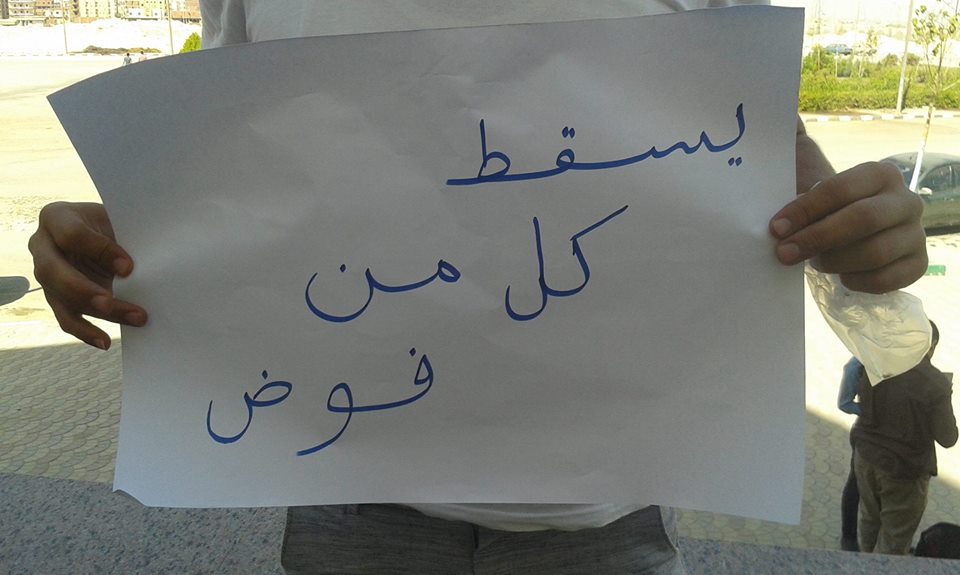 يسقط
كل من
فوض